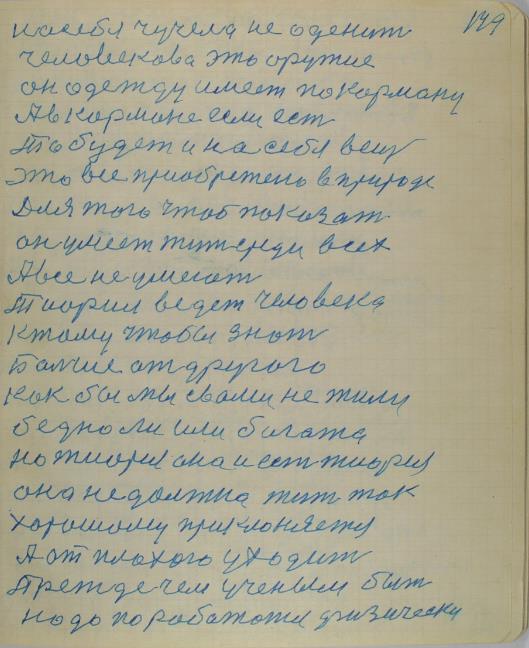 139
на себя чучела не оденит
человекова это оружие
он одежду имеет по карману
А в кормоне если ест
То будет и на себя вещ
это все приобретено в природе
Для того чтоб показат
он умеет жит среди всех
А все не умеют
Тиория ведет человека
К тому чтобы знат
Болшие от другого
как бы мы свами не жили
бедно ли или богата
но тиория она и ест тиория
она не должна жит так
хорошому приклоняется
А от плохого уходит
Прежде чем ученым быт
надо поработоти физически